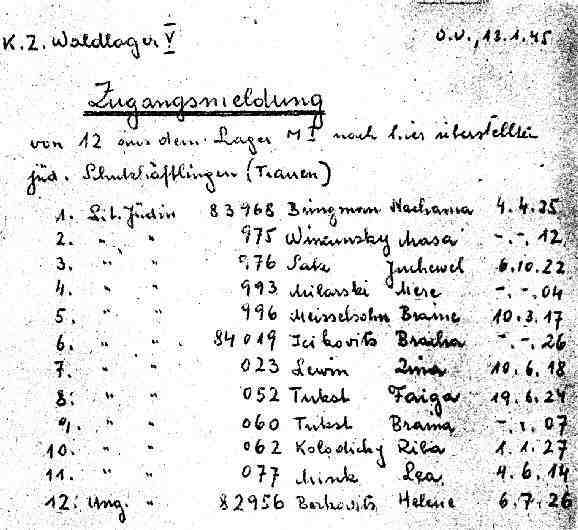 K.Z. Waldlager V
O.U., 12.1.45
Zugangsmeldung
von 12 aus dem Lager M I nach hier überstellten
jüd. Schutzhäftlingen (Frauen)
1. Lit. Jüdin 83968 Bringman Nechama 4.4.25
2. " " 975 Winzunsky Masa -.-.12
3. " " 976 Satz Juchewel 6.10.22
4. " " 993 Milarski Mere -.-.04
5. " " 996 Meisselsohn Braine 10.3.17
6. " " 84019 Icikovits Bracha -.-.26
7. " " 023 Lewin Zina 10.6.18
8. " " 052 Tukst Faiga 19.6.24
9. " " 060 Tukst Braina -.-.07
10. " " 062 Kolodichy Riba 1.1.27
11. " " 077 Minsk Lea 4.6.14
12. Ung. " 82956 Berkovits Helene 6.7.26